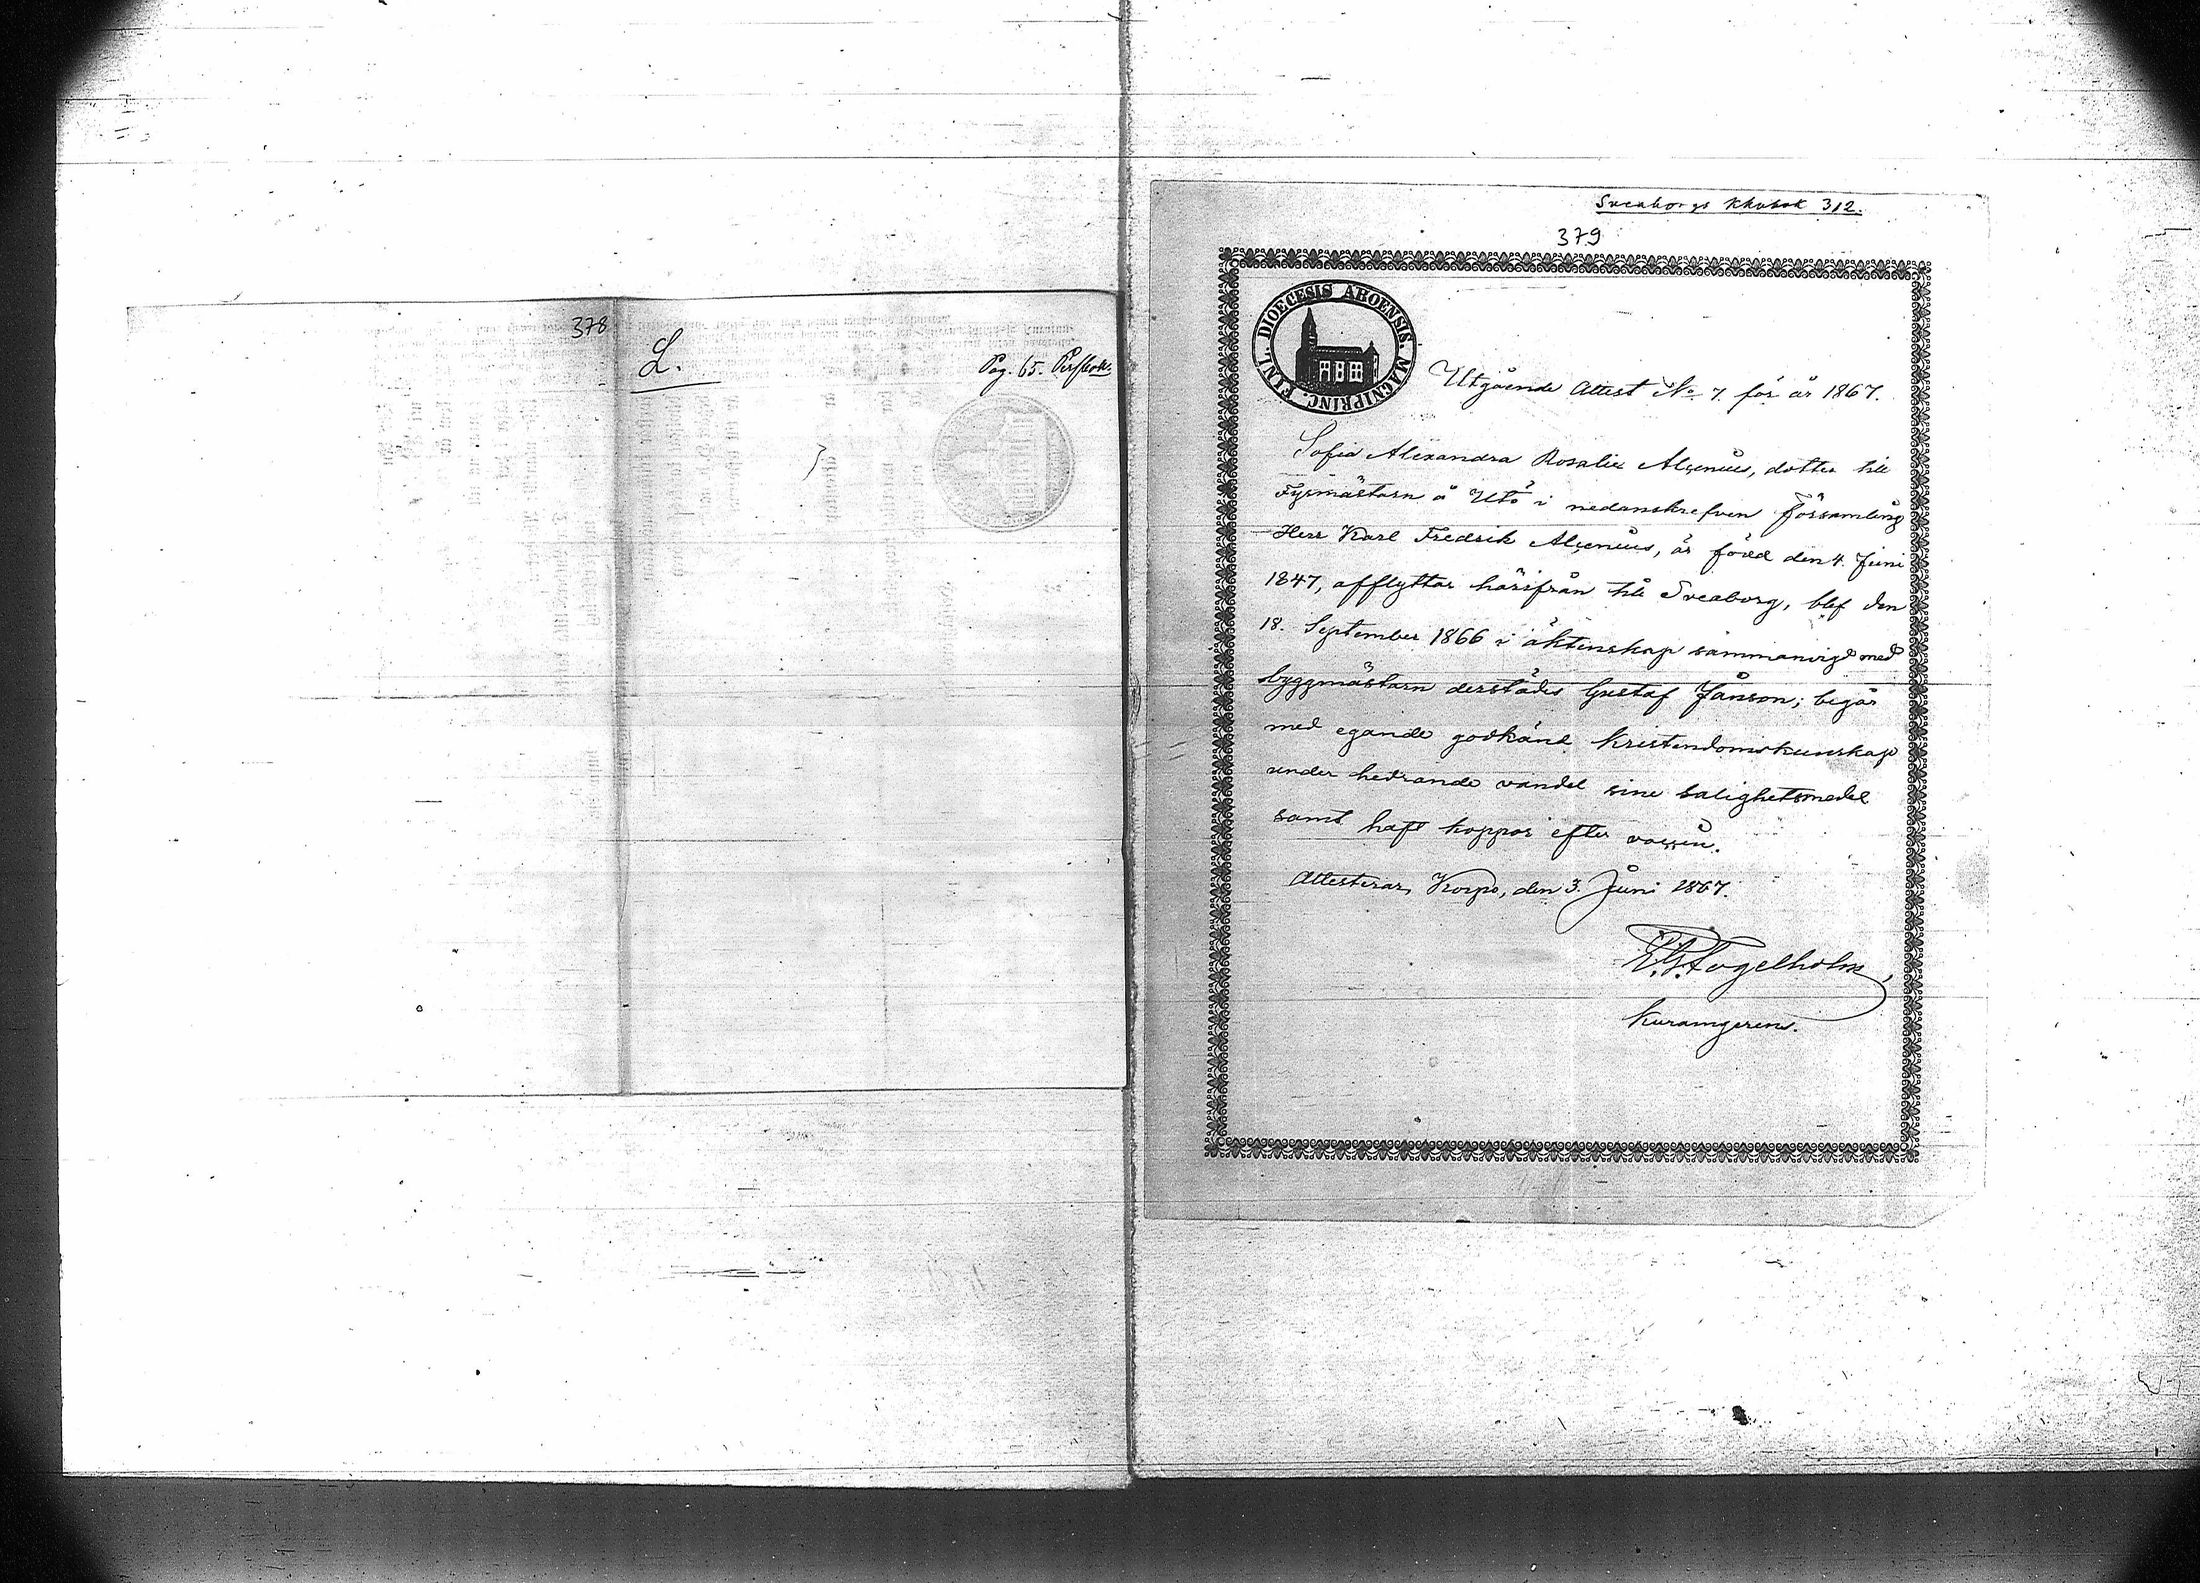 378
L.
Pag. 65. Persbok.
Sveaborgs Kkobok 312.
379
FINL. DIOECESIS ABOENSIS. MAGNIPRINC.
Utgående Attest No 7. för år 1867.
Sofia Alexandra Rosalie Alcenius, dotter till
Fyrmästarn å Utö i nedanskrefven församling
Herr Karl Fredrik Alcenius, är född den 4. Juni
1847, afflyttar härifrån till Sveaborg, blef den
18. September 1866 i äktenskap sammanvigd med
byggmästarn derstädes Gustaf Jånson; begår
med egande godkänd kristendomskunskap
under hedrande vandel sine salighetsmedel
samt haft koppor efter vaccin.
Attesterar, Korpo, den 3. Juni 1867.
Fogelholm,
kuramgerens.